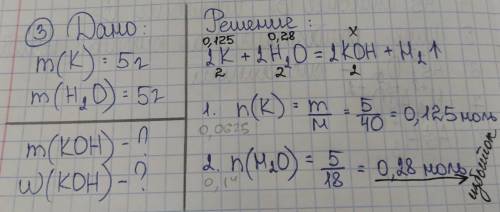 ③ Дано:
m(K) = 5г
m(H₂O) = 5г
m(KOH) - ?
ω(KOH) - ?
Решение:
0,125 0,28 x
2K + 2H₂O = 2KOH + H₂↑
2 2 2
1. n(K) = m/M = 5/40 = 0,125 моль
0,0625
2. n(H₂O) = 5/18 = 0,28 моль
0,14
избыток